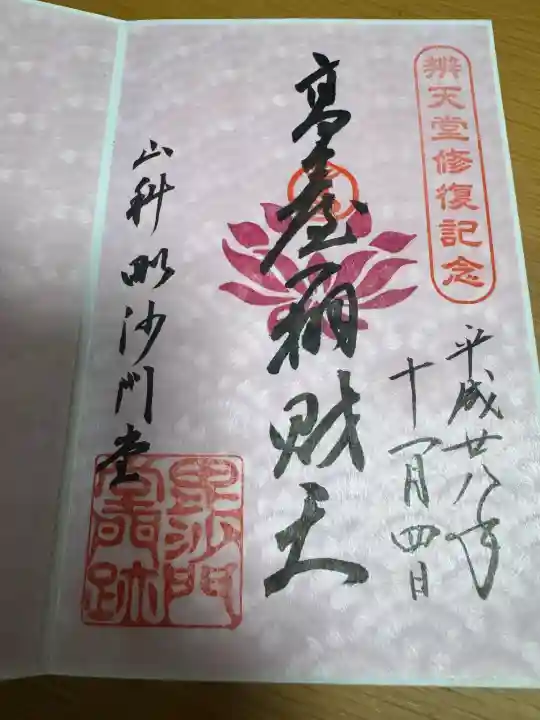 辨天堂修復記念
平成廿八年
十一月四日
高臺弁財天
山科毗沙門堂
毘沙門
堂門跡